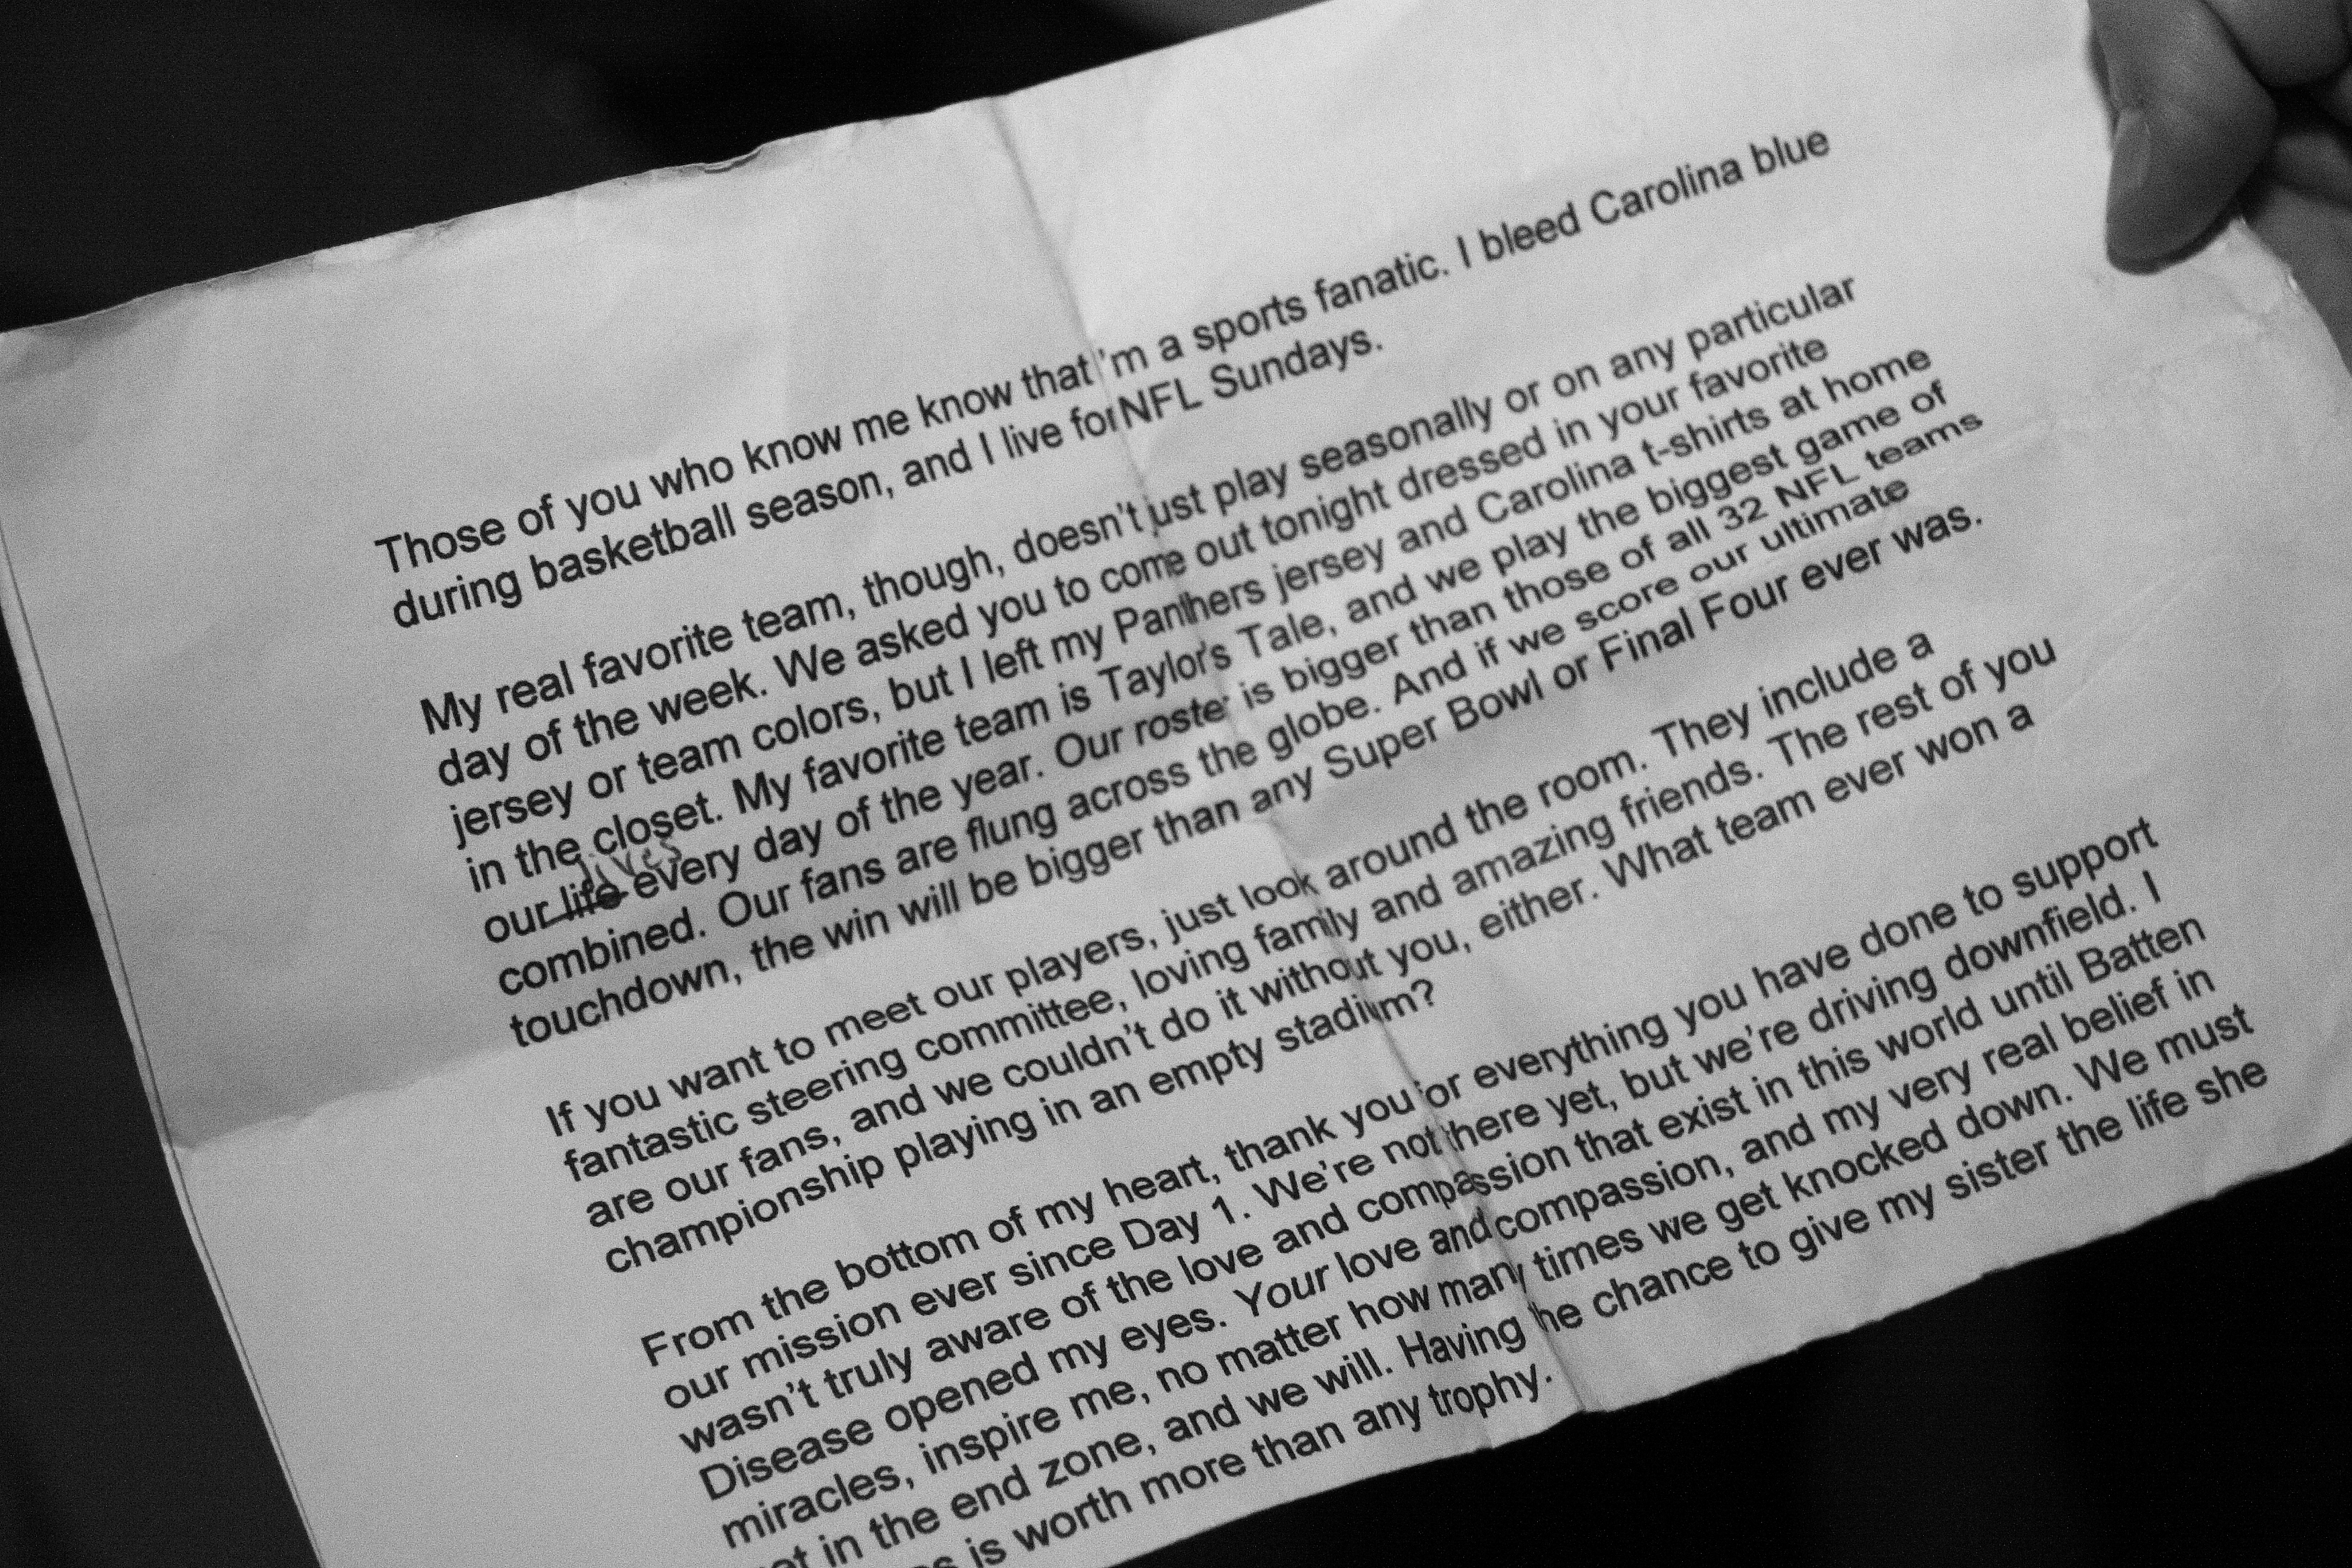 Those of you who know me know that 'm a sports fanatic. I bleed Carolina blue
during basketball season, and I live for NFL Sundays.
My real favorite team, though, doesn't just play seasonally or on any particular
day of the week. We asked you to come out tonight dressed in your favorite
jersey or team colors, but I left my Panthers jersey and Carolina t-shirts at home
in the closet. My favorite team is Taylor's Tale, and we play the biggest game of
lives
our life every day of the year. Our roster is bigger than those of all 32 NFL teams
combined. Our fans are flung across the globe. And if we score our ultimate
touchdown, the win will be bigger than any Super Bowl or Final Four ever was.
If you want to meet our players, just look around the room. They include a
fantastic steering committee, loving family and amazing friends. The rest of you
are our fans, and we couldn't do it without you, either. What team ever won a
championship playing in an empty stadium?
From the bottom of my heart, thank you for everything you have done to support
our mission ever since Day 1. We're not there yet, but we're driving downfield. I
wasn't truly aware of the love and compassion that exist in this world until Batten
Disease opened my eyes. Your love and compassion, and my very real belief in
miracles, inspire me, no matter how many times we get knocked down. We must
in the end zone, and we will. Having the chance to give my sister the life she
is worth more than any trophy.